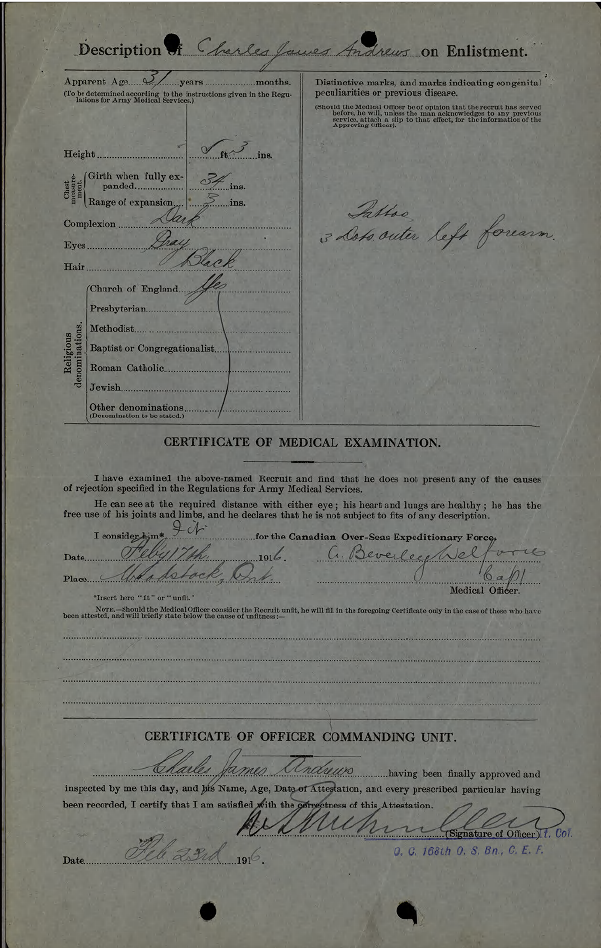 Description of Charles James Andrews on Enlistment.
Apparent Age 31 years months.
(To be determined according to the instructions given in the Regulations for Army Medical Services.)
Height 5 ft 3 ins.
Chest measurement.
Girth when fully expanded 34 ins.
Range of expansion 3 ins.
Complexion Dark
Eyes Gray
Hair Black
Religious denominations.
Church of England Yes
Presbyterian
Methodist
Baptist or Congregationalist
Roman Catholic
Jewish
Other denominations
(Denomination to be stated.)
Distinctive marks, and marks indicating congenital
peculiarities or previous disease.
(Should the Medical Officer be of opinion that the recruit has served
before, he will, unless the man acknowledges to any previous
service, attach a slip to that effect, for the information of the
Approving Officer).
Tattoo
3 Dots outer left forearm.
CERTIFICATE OF MEDICAL EXAMINATION.
I have examined the above-named Recruit and find that he does not present any of the causes
of rejection specified in the Regulations for Army Medical Services.
He can see at the required distance with either eye; his heart and lungs are healthy; he has the
free use of his joints and limbs, and he declares that he is not subject to fits of any description.
I consider him* Fit for the Canadian Over-Seas Expeditionary Force.
Date Feby 17th 1916.
Place Woodstock, Ont
Beverley
Capt
Medical Officer.
*Insert here "fit" or "unfit."
NOTE.—Should the Medical Officer consider the Recruit unfit, he will fill in the foregoing Certificate only in the case of those who have
been attested, and will briefly state below the cause of unfitness:—
CERTIFICATE OF OFFICER COMMANDING UNIT.
Charles James Andrews having been finally approved and
inspected by me this day, and his Name, Age, Date of Attestation, and every prescribed particular having
been recorded, I certify that I am satisfied with the correctness of this Attestation.
(Signature of Officer) Lt. Col.
O. C. 168th O. S. Bn., C. E. F.
Date Feb 23rd 1916.